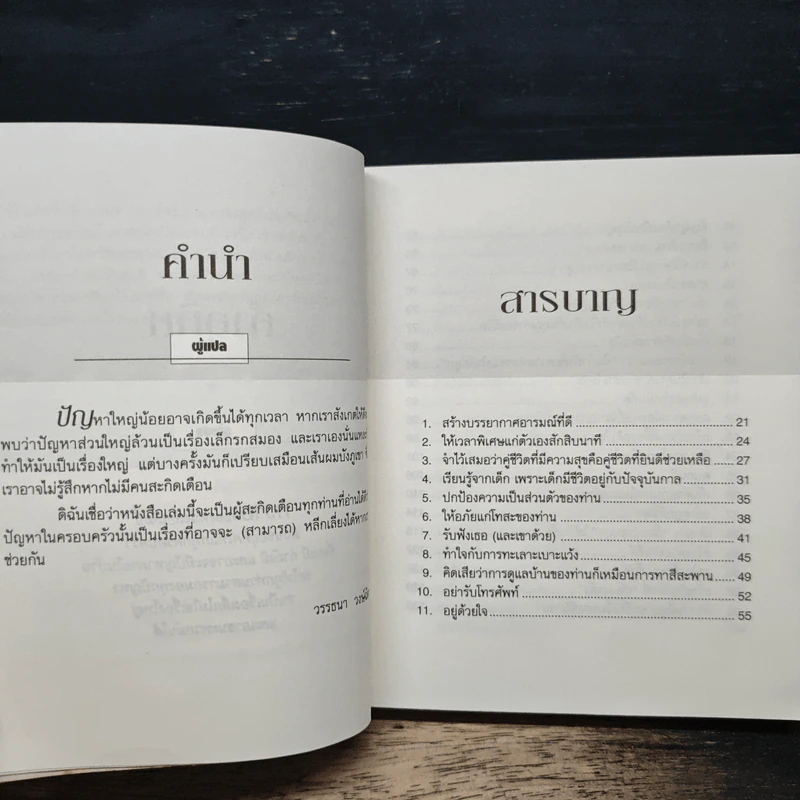 คำนำ
ผู้แปล
ปัญหาใหญ่น้อยอาจเกิดขึ้นได้ทุกเวลา หากเราสังเกตให้
พบว่าปัญหาส่วนใหญ่ล้วนเป็นเรื่องเล็กรกสมอง และเราเองนั่นแหละ
ทำให้มันเป็นเรื่องใหญ่ แต่บางครั้งมันก็เปรียบเสมือนเส้นผมบังภูเขา
เราอาจไม่รู้สึกหากไม่มีคนสะกิดเตือน
ดิฉันเชื่อว่าหนังสือเล่มนี้จะเป็นผู้สะกิดเตือนทุกท่านที่อ่านได้
ปัญหาในครอบครัวนั้นเป็นเรื่องที่อาจจะ (สามารถ) หลีกเลี่ยงได้
ช่วยกัน
วรรธนา
สารบาญ
1. สร้างบรรยากาศอารมณ์ที่ดี 21
2. ให้เวลาพิเศษแก่ตัวเองสักสิบนาที 24
3. จำไว้เสมอว่าคู่ชีวิตที่มีความสุขคือคู่ชีวิตที่ยินดีช่วยเหลือ 27
4. เรียนรู้จากเด็ก เพราะเด็กมีชีวิตอยู่กับปัจจุบันกาล 31
5. ปกป้องความเป็นส่วนตัวของท่าน 35
6. ให้อภัยแก่โทสะของท่าน 38
7. รับฟังเธอ (และเขาด้วย) 41
8. ทำใจกับการทะเลาะเบาะแว้ง 45
9. คิดเสียว่าการดูแลบ้านของท่านก็เหมือนการทาสีสะพาน 49
10. อย่ารับโทรศัพท์ 52
11. อยู่ด้วยใจ 55